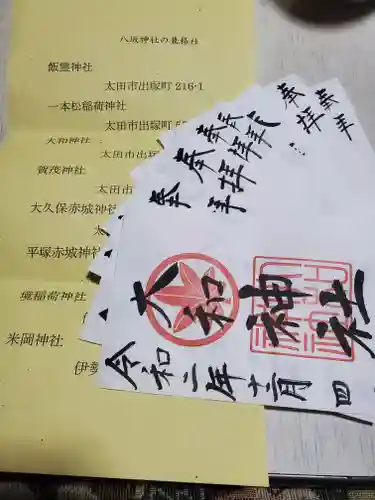 八坂神社の兼務社
飯霊神社
太田市出塚町 216-1
一本松稲荷神社
太田市出塚町
大和神社
太田市出塚
賀茂神社
太田市
大久保赤城神社
平塚赤城神社
稲荷神社
米岡神社
伊勢
奉拝
奉拝
奉拝
奉拝
奉拝
奉
大和神社
令和二年十二月四